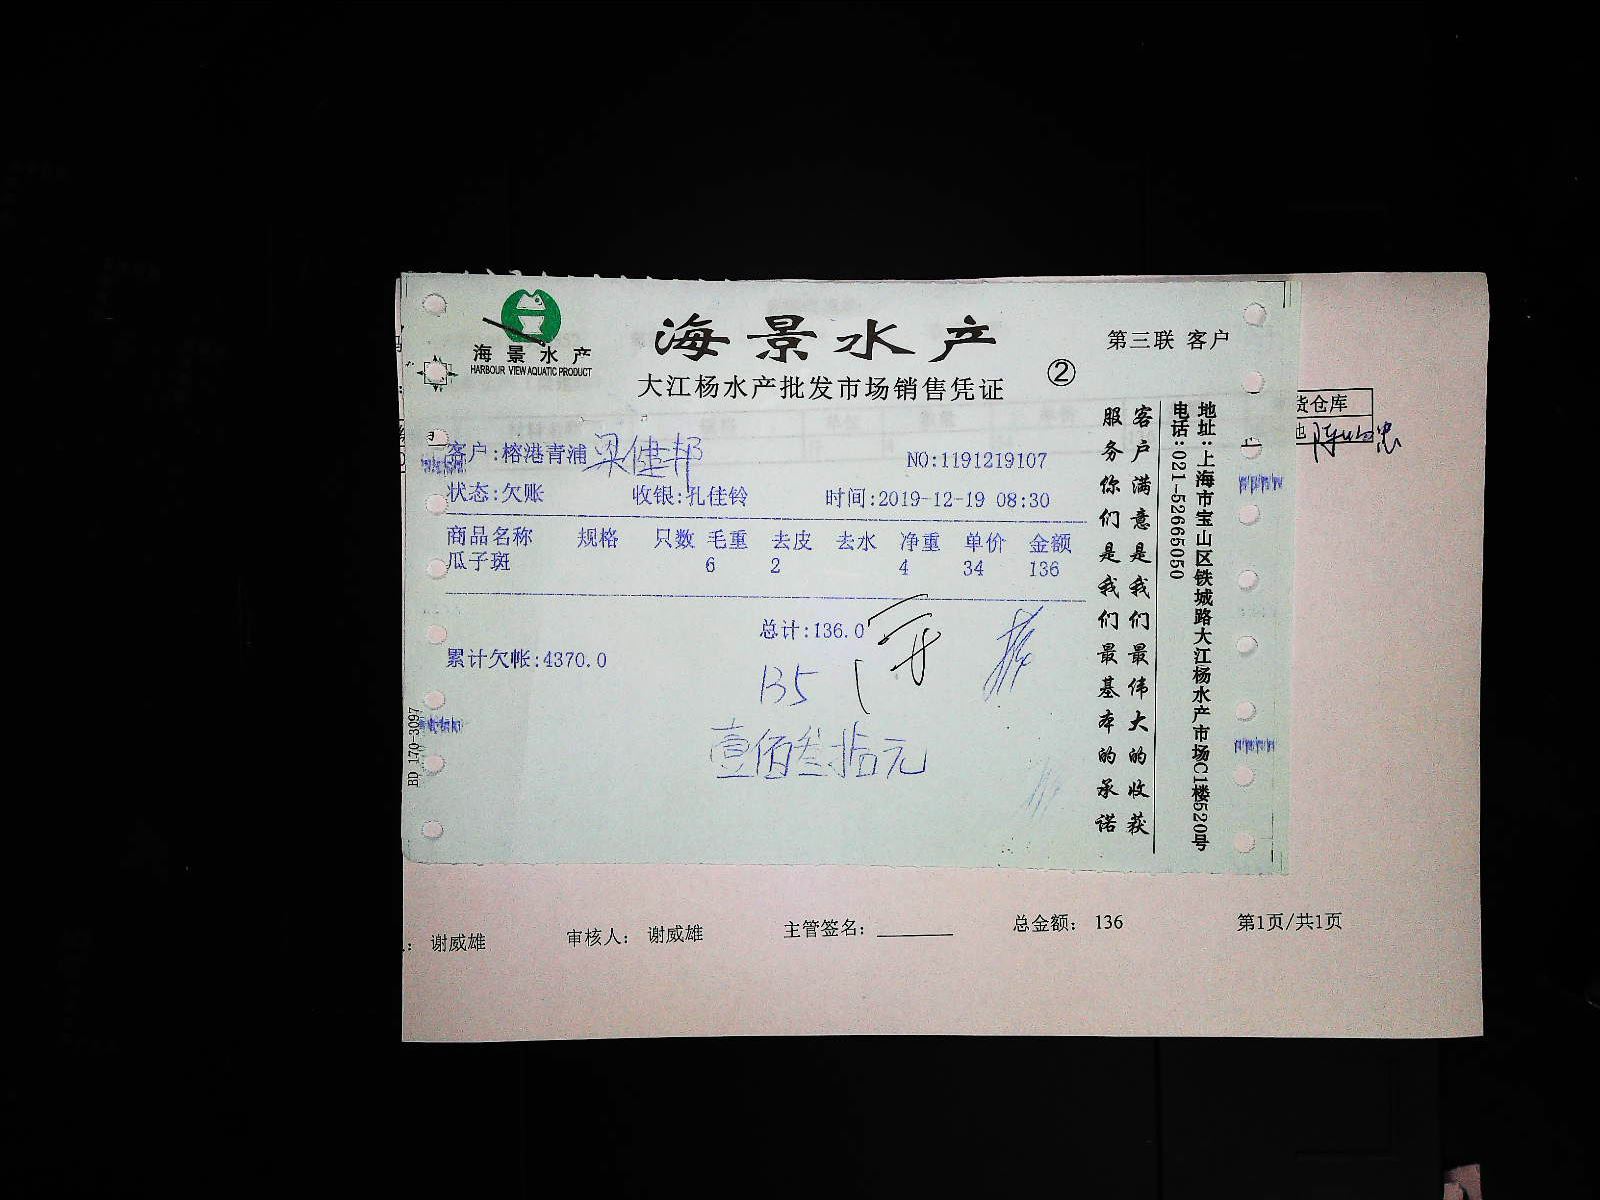 海景水产
HARBOUR VIEW AQUATIC PRODUCT
海景水产
大江杨水产批发市场销售凭证
②
第三联 客户
客户:榕港青浦 梁健邦
NO:1191219107
状态:欠账 收银:孔佳铃 时间:2019-12-19 08:30
商品名称 规格 只数 毛重 去皮 去水 净重 单价 金额
瓜子斑 6 2 4 34 136
总计:136.0
累计欠帐:4370.0
135
壹佰叁拾元
客户满意是我们最伟大的收获
服务你们是我们最基本的承诺
地址:上海市宝山区铁城路大江杨水产市场C1楼520号
电话:021-52665050
BD 170-3097
货仓库
: 谢威雄 审核人: 谢威雄 主管签名: 总金额: 136 第1页/共1页